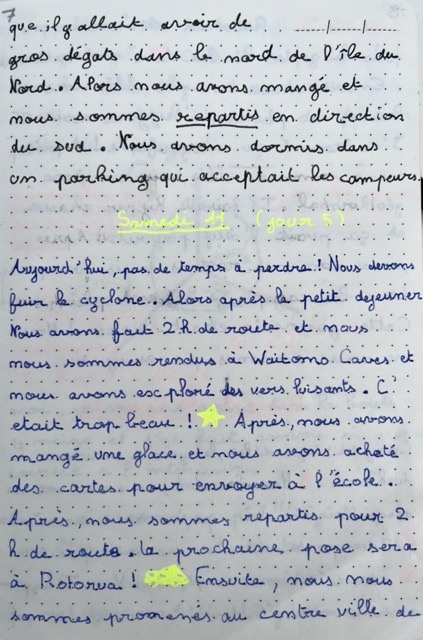 7
que il y allait avoir de
gros dégats dans le nord de l'île du
Nord. Alors nous avons mangé et
nous sommes repartis en direction
du sud. Nous avons dormis dans
un parking qui acceptait les campeurs.
Samedi 11 (jour 5)
Aujourd'hui, pas de temps à perdre! Nous devons
fuir le cyclone. Alors après le petit dejeuner
Nous avons fait 2h de route et nous
nous sommes rendus à Waitomo Caves et
nous avons exploré des vers luisants. C'
etait trop beau! Après, nous avons
mangé une glace et nous avons acheté
des cartes pour envoyer à l'école.
Après, nous sommes repartis pour 2
h de route. la prochaine pose sera
à Rotorua! Ensuite, nous nous
sommes promenés au centre ville de